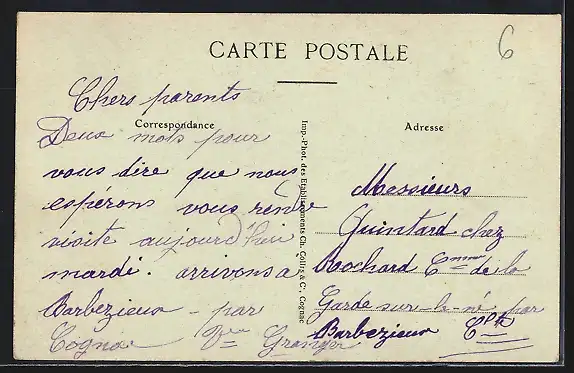 6
CARTE POSTALE
Correspondance
Adresse
Chers parents
Deux mots pour
vous dire que nous
espérons vous rendre
visite aujourd'hui
mardi. arrivons a
Barbezieux - par
Cogna
Imp.-Phot. des Etablissements Ch. Collas & C., Cognac
Messieurs
Quintard chez
Rochard Cmme de la
Garde sur-le-né par
Barbezieux